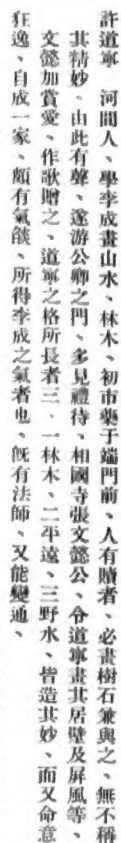 許道寧　河間人、學李成畫山水、林木、初市藥于端門前、人有贖者、必畫樹石兼與之、無不稱
其精妙、由此有聲、遂游公卿之門、多見禮待、相國寺張文懿公、令道寧畫其居壁及屏風等、
文懿加賞愛、作歌贈之、道寧之格所長者三、一林木、二平遠、三野水、皆造其妙、而又命意
狂逸、自成一家、頗有氣燄、所得李成之氣者也、既有法師、又能變通、